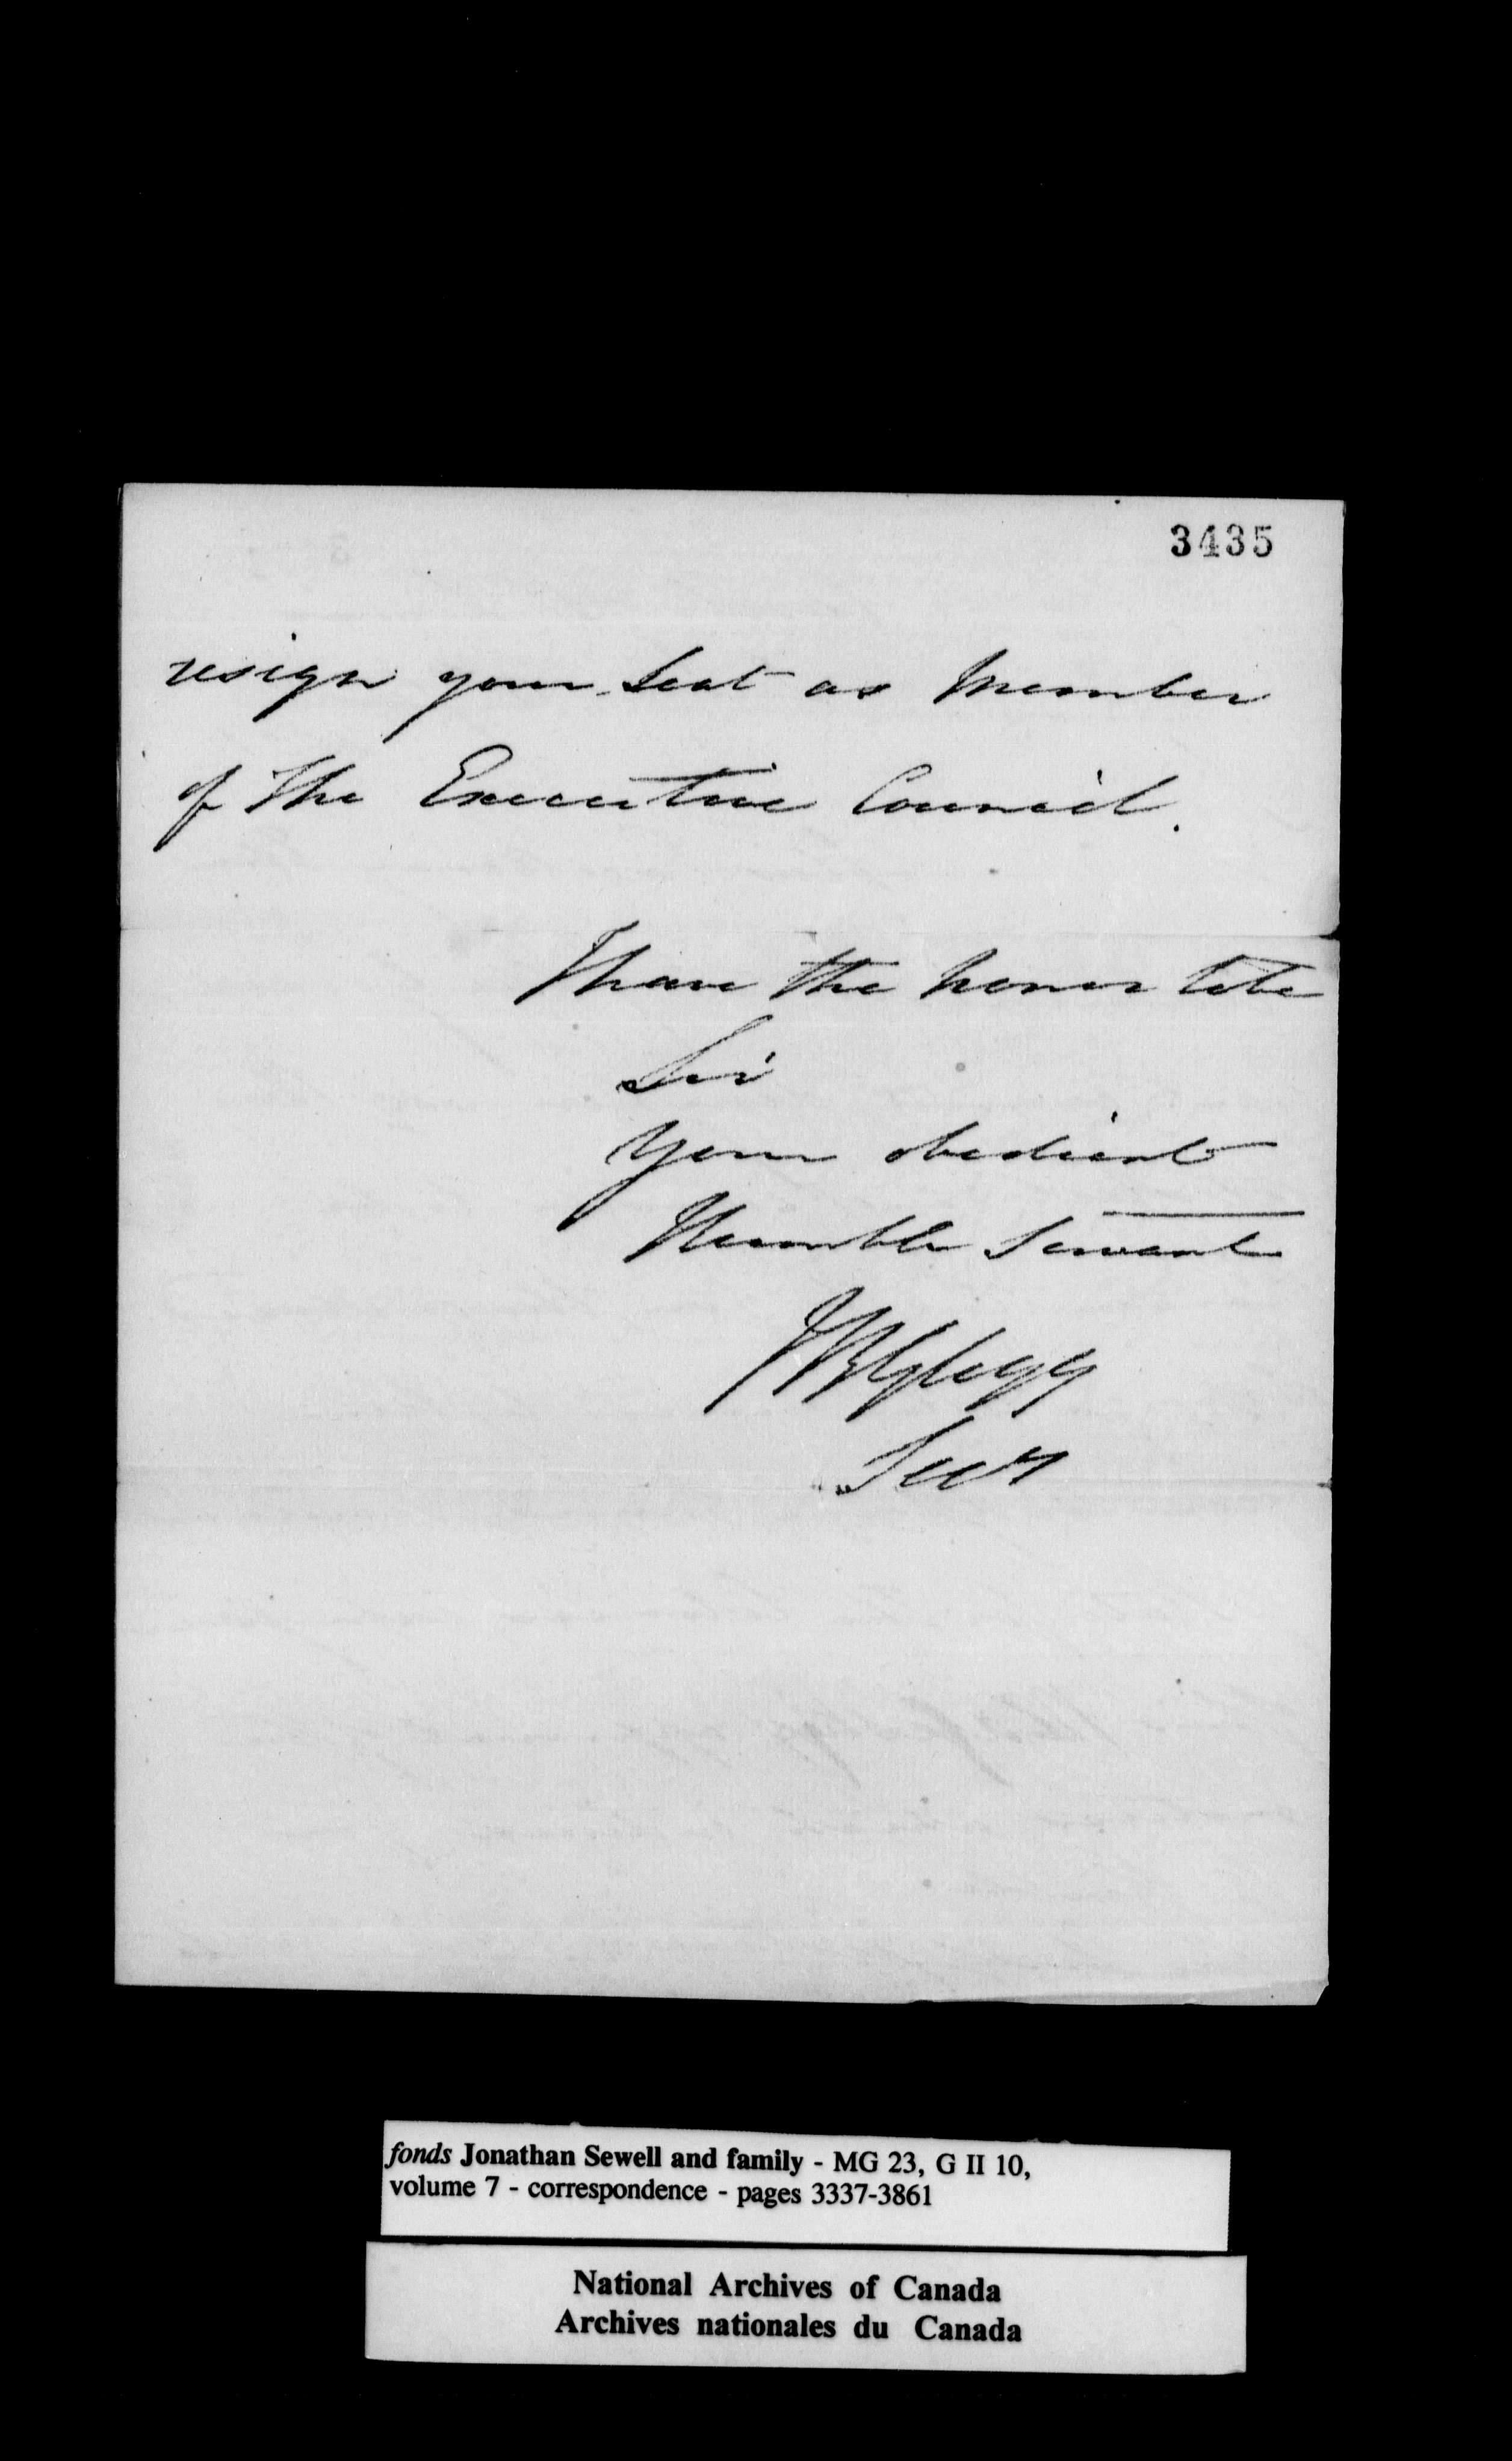 3435
resign your Seat as Member
of the Executive Council.
I have the honor to be
Sir
Your obedient
Humble Servant
JBGlegg
Secy
fonds Jonathan Sewell and family - MG 23, G II 10,
volume 7 - correspondence - pages 3337-3861
National Archives of Canada
Archives nationales du Canada